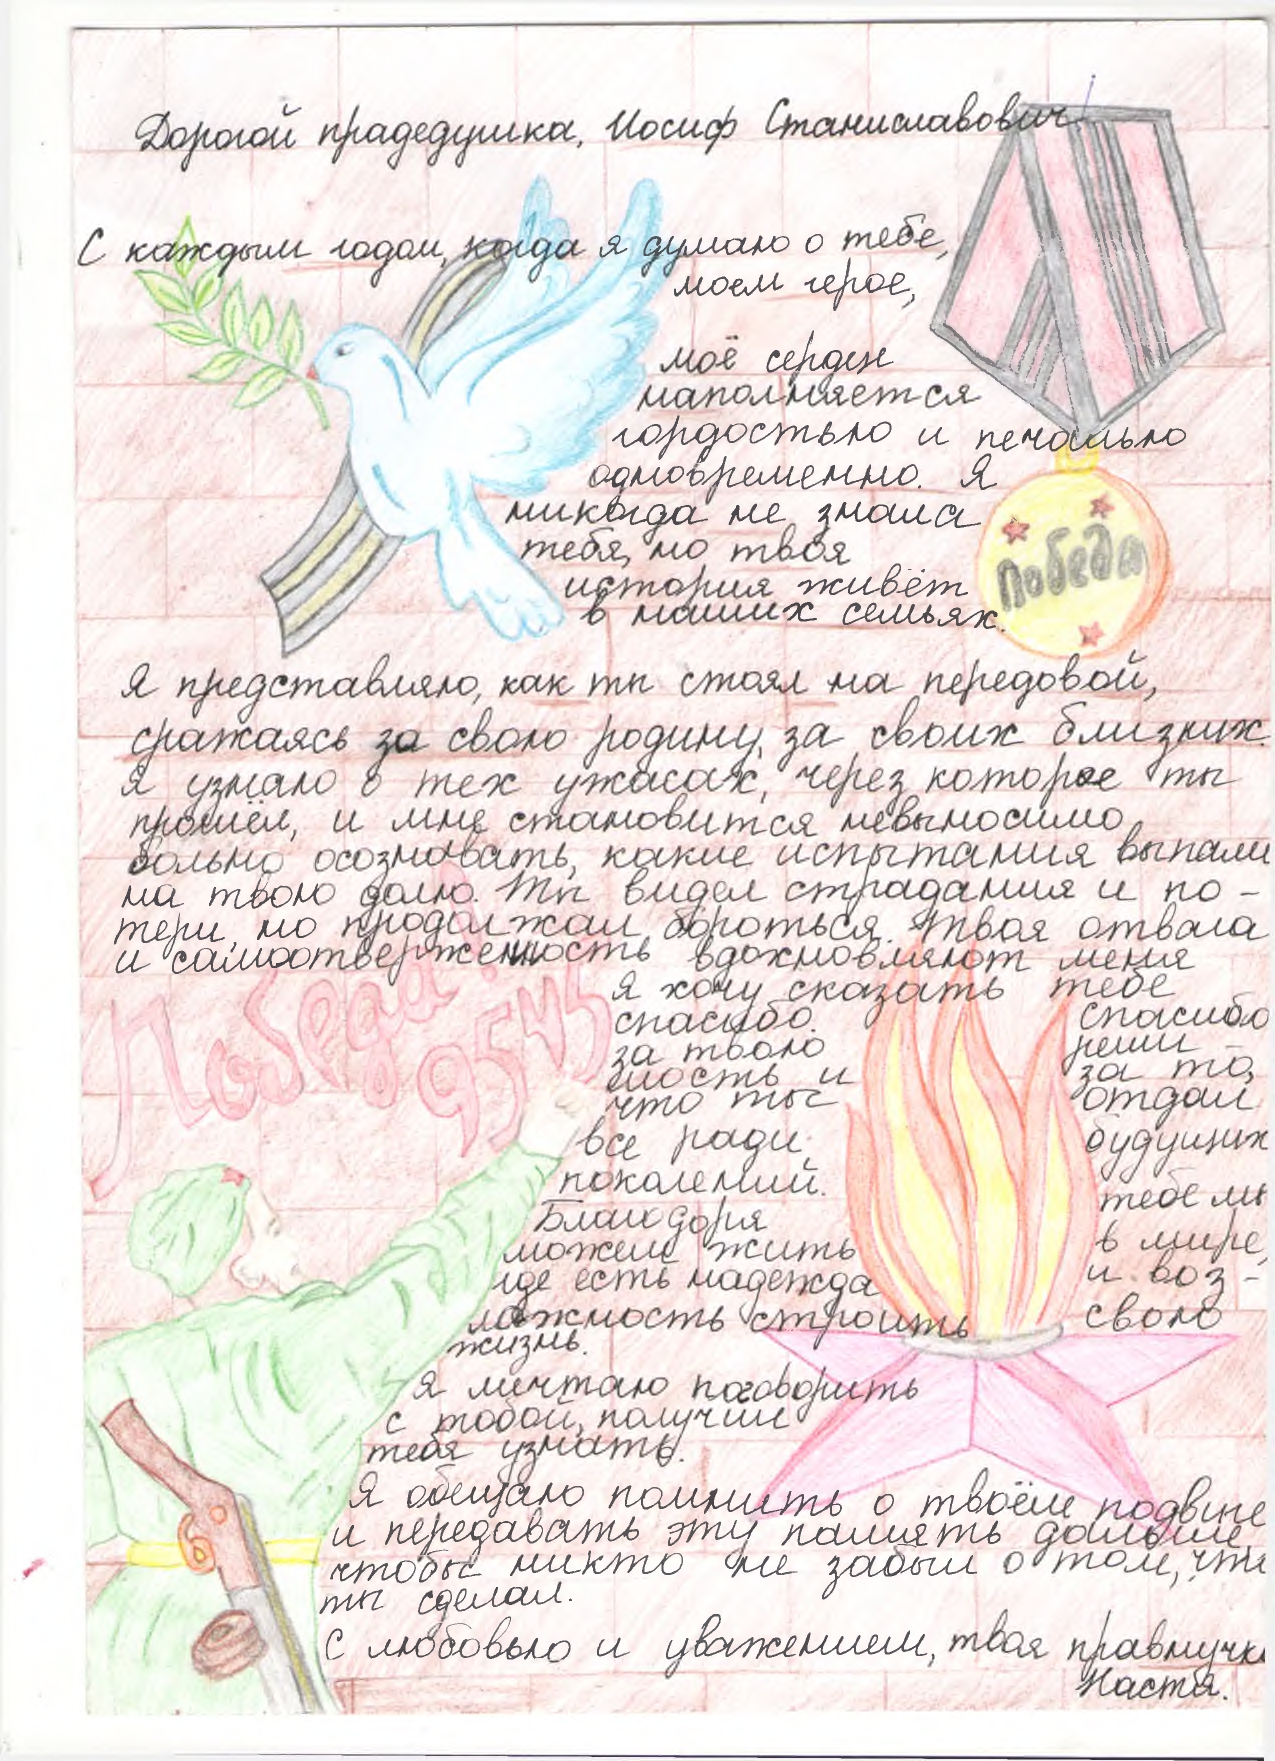 Дорогой прадедушка, Иосиф Станиславович
С каждым годом, когда я думаю о тебе,
моем герое,
моё сердце
наполняется
гордостью и печалью
одновременно. Я
никогда не знала
тебя, но твоя
история живёт
в наших семьях.
Победа
Я представляю, как ты стоял на передовой,
сражаясь за свою родину, за своих близких.
Я узнаю о тех ужасах, через которые ты
прошёл, и мне становится невыносимо
больно осознавать, какие испытания выпали
на твою долю. Ты видел страдания и по-
тери, но продолжал бороться. Твоя отвага
и самоотверженность вдохновляют меня
Я хочу сказать тебе
спасибо. спасибо
за твою реши-
мость и за то,
что ты отдал
все ради будущих
поколений.
Благодоря тебе мы
можем жить в мире,
где есть надежда и воз-
можность строить свою
жизнь.
Победа!
9 5 45
Я мечтаю поговорить
с тобой, получше
тебя узнать.
Я обещаю помнить о твоём подвиге
и передавать эту память дальше
чтобы никто не забыл о том, что
ты сделал.
С любовью и уважением, твоя правнучка
Настя.